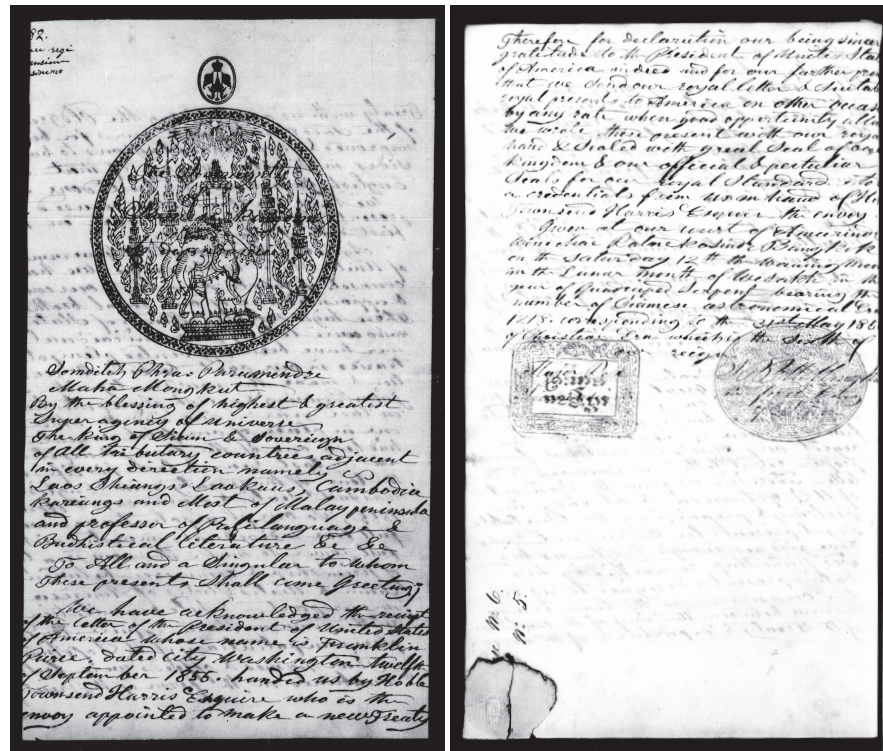 82.
Somditch Phra Paramendre
Maha Mongkut
By the blessing of highest & greatest
Super agency of universe
The King of Siam & Sovereign
of All tributary countries adjacent
in every direction namely
Laos Shiangs Laokaus, Cambodia
Kariangs and Most of Malay peninsula
and professor of Pali language &
Budhistical literature &c &c
To All and a Singular to whom
These presents Shall come Greeting
We have acknowledged the receipt
of the letter of the President of United States
of America whose name is Franklin
Pierce, dated City Washington twelfth
of September 1855. handed us by Noble
Townsend Harris Esquire who is the
envoy appointed to make a new Treaty
Therefore for declaration our being
gratitude to the President of Unites
of America indeed and for our further
that we send our royal letter &
royal presents to America on other
by any rate when good opportunity
we wrote these present with our
hand & Sealed with great Seal of our
kingdom & our official & peculiar
Seals for our royal Standard
a credentials from us in hand of
Townsend Harris Esquire the envoy
Given at our court of
on the Saturday 12th the Waning
in the Lunar month of Wisakh in the
year of Quadruped Serpent bearing the
number of Siamese astronomical
1218. corresponding to the 31st May
of Christian Era which is the Sixth of
our reign
No 6.
No 5.